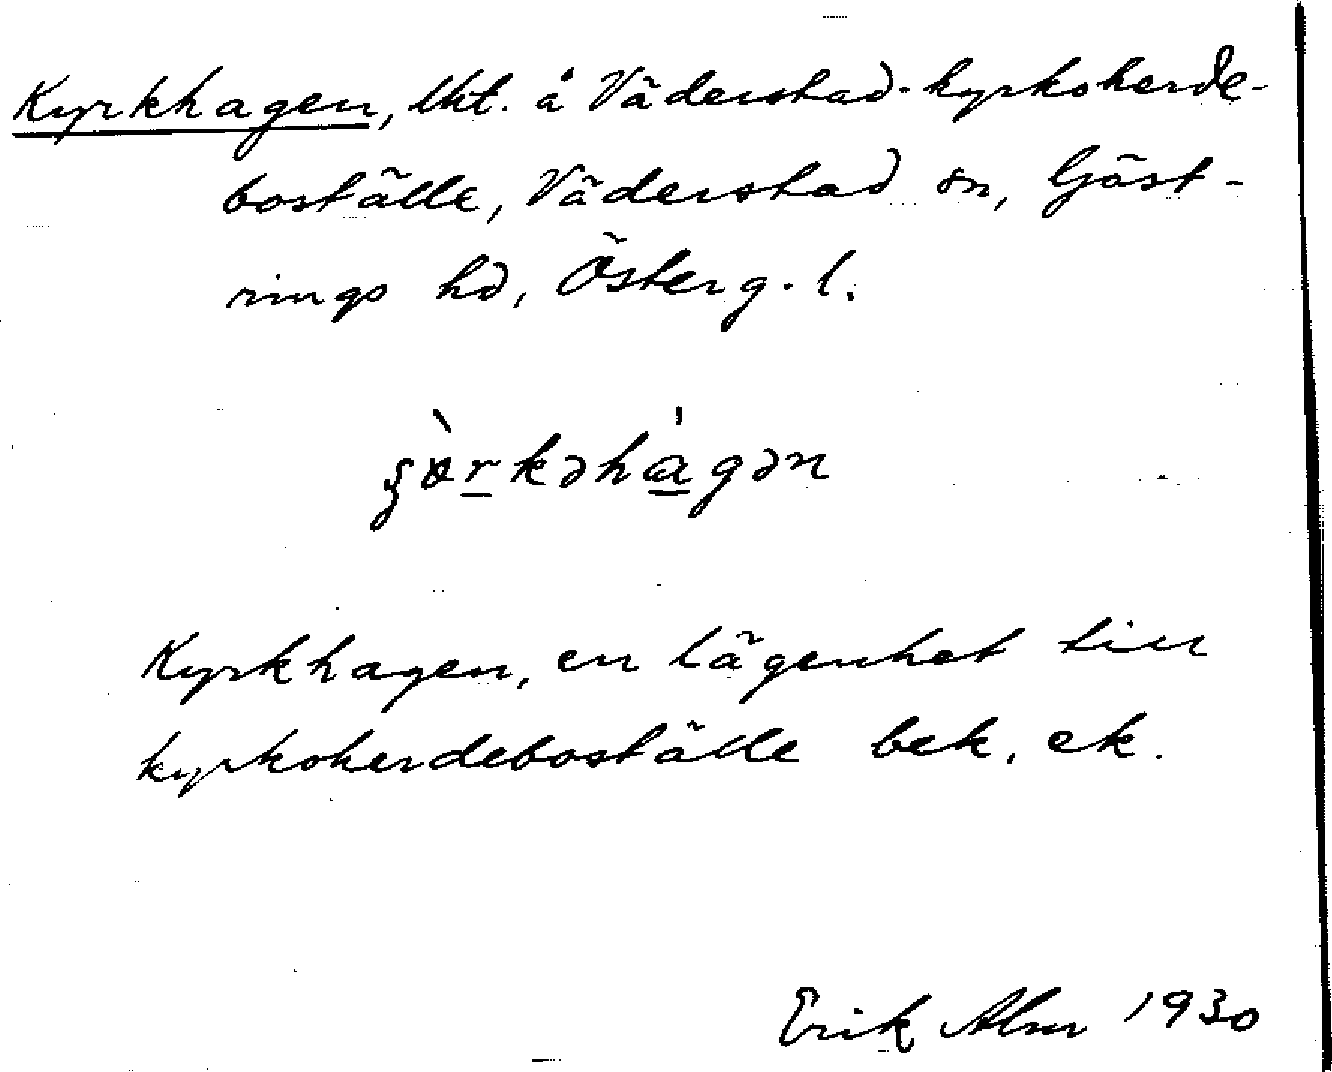 Kyrkhagen, lht. å Väderstad-kyrkoherde-
boställe, Väderstad sn, Göst-
rings hd, Österg. l.
kəhàgən
Kyrkhagen, en lägenhet till
kyrkoherdeboställe bek. ek.
Erik Alm 1930